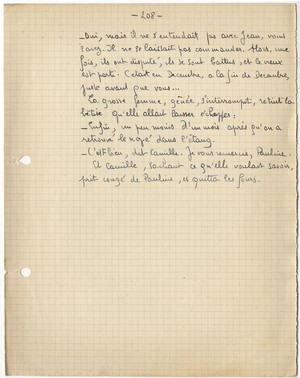 - 208 -
_ Oui, mais il ne s'entendait pas avec Jean, vous
savez. Il ne se laissait pas commander. Alors, une
fois, ils ont disputé, ils se sont battus, et le vieux
est parti. C'était en Décembre, à la fin de Décembre,
juste avant que vous...
La grosse femme, gênée, s'interrompit, retint la
bêtise qu'elle allait laisser échapper :
_ Enfin, un peu moins d'un mois après qu'on a
retrouvé le noyé dans l'étang.
_ C'est bien, dit Camille. Je vous remercie, Pauline.
Et Camille, sachant ce qu'elle voulait savoir,
prit congé de Pauline, et quitta les fours.